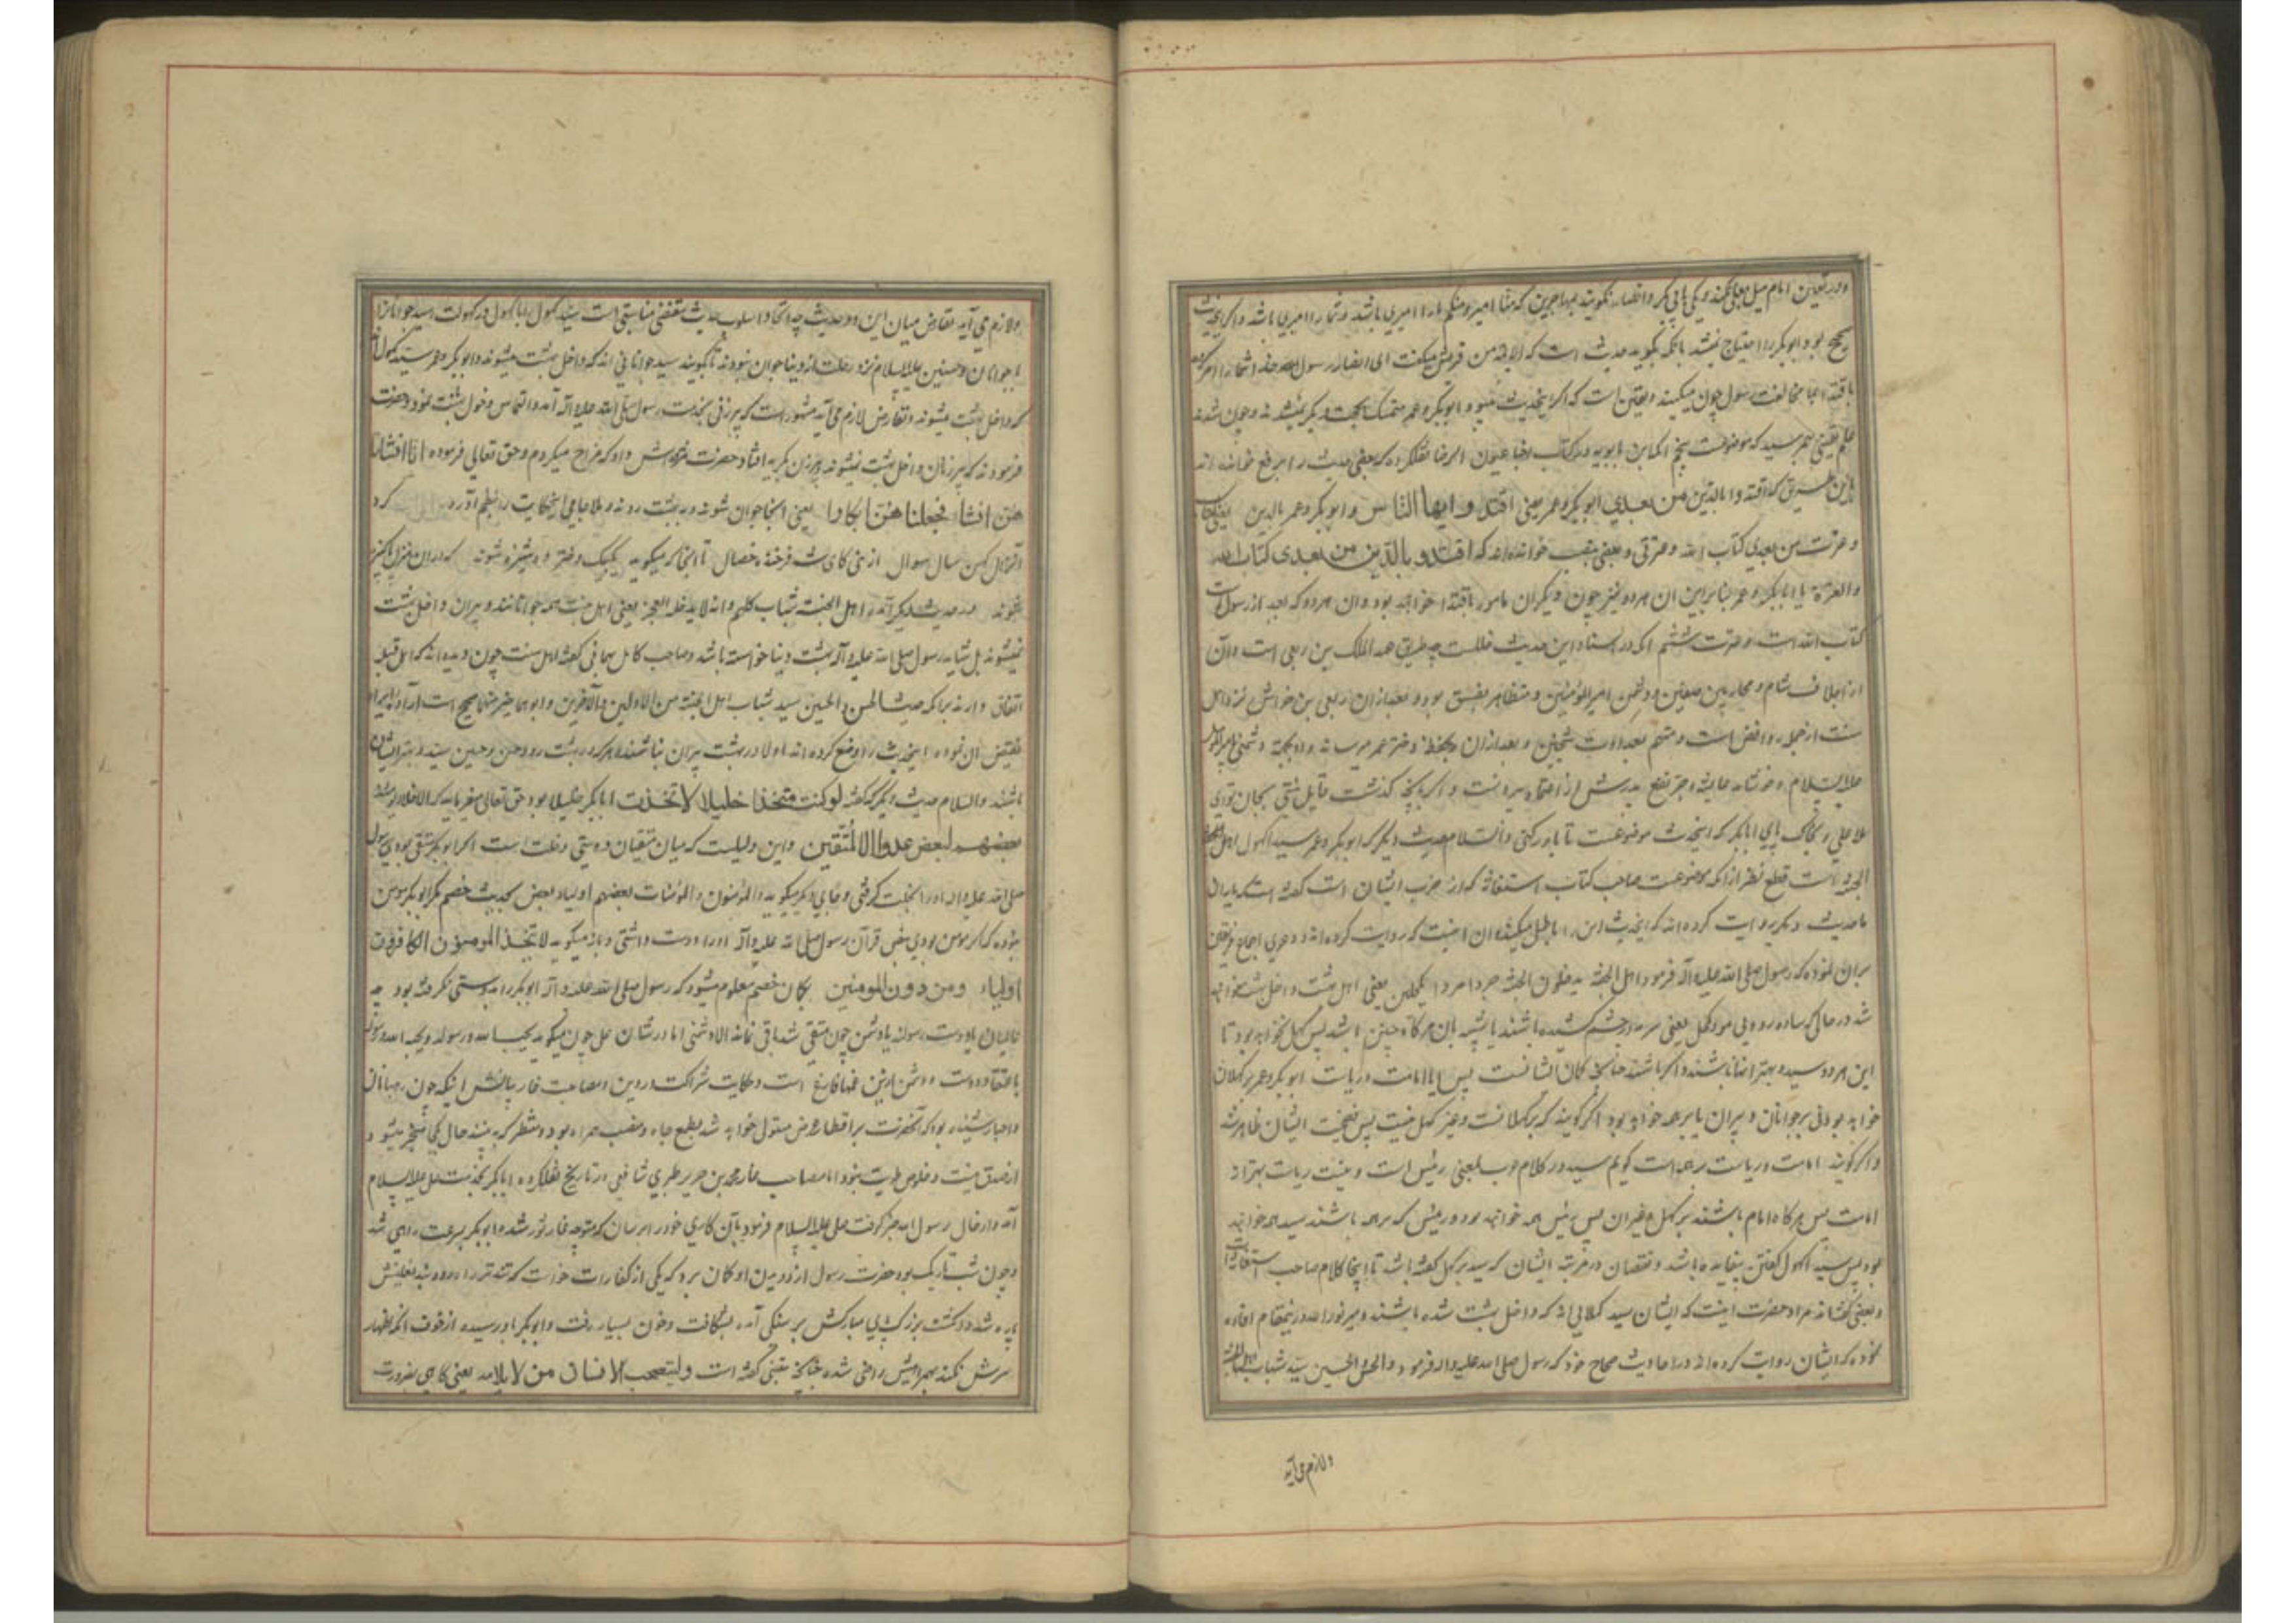 ودر تعیین امام میل بعلی نکنند و یکی بابی بکر وانصار نکویند بمهاجرین که منا امیر ومنکم امیر مارا امیری باشد وشمارا امیری باشد واکر این حدیث
صحیح بود ابوبکر را احتیاج نمیشد بانکه بکوید حدیث است که الائمة من قریش میکفت ای انصار رسول خدا شما را امر کرده
باقتدا بما مخالفت رسول چون میکنید ویقین است که اکر اینحدیث میبود ابوبکر وعمر متمسک بحجت دیکر نمیشدند وچون شدند
علم یقینی بهم رسید که موضوعست پنجم انکه ابن بابویه در کتاب اخبار عیون الرضا نقل کرده که بعضی حدیث را برفع خوانده اند
باین طریق که اقتدوا بالذین من بعدی ابوبکر وعمر یعنی اقتدوا ایها الناس وابوبکر وعمر بالذین
وعترت من بعدی کتاب الله وعترتی وبعضی بنصب خوانده اند که اقتدو بالذین من بعدی کتاب الله
والعترة یا ابابکر وعمر بنابرین ان هر دو نیز چون دیکران مامور باقتدا خواهند بود وان هر دو که بعد از رسول است
کتاب الله است وعترت ششم انکه در اسناد این حدیث خللست چه طریق عبد الملک بن ربعی است وآن
از اجلاف شام ومحاربین صفین ودشمن امیر المؤمنین ومتظاهر بفسق بود وبعد از ان ربعی بن خراش نزد اهل
سنت از جمله روافض است ومتهم بعداوت شیخین وبعد از ان بحفظه دختر عمر میرساند واو بجهة دشمنی
علیه السلام وخوشامد عایشه وجر نفع پدرش از اعتماد بیرونست واکر بانچه کذشت قایل نشی بجان تو ای
ملا علی وبخاک پای ابابکر که اینحدیث موضوعست تا باور کنی والسلام حدیث دیکر که ابوبکر وعمر سیدا کهول اهل
الجنة است قطع نظر از انکه موضوعست صاحب کتاب استغاثه که از عرب ایشان است کفته است
ما حدیث دیکر روایت کرده اند که اینحدیث این را باطل میکند وان اینست که روایت کرده اند ودعوی اجماع فریقین
بران نموده که رسول صلی الله علیه وآله فرمود اهل الجنة یدخلون الجنة جردا مردا مکحلین یعنی اهل بهشت داخل بهشت خواهند
شد در حالی که ساده رو وبی مو وکحل یعنی سرمه در چشم کشیده باشند یا شبیه بان هر کاه چنین باشد پس کهل نخواهد بود تا
این هر دو سید وبهتر انها باشند واکر باشند چنانچه کمان ایشانست پس ایا امامت وریاست ابوبکر وعمر بر کهلان
خواهد بود نی بر جوانان وپیران یا بر همه خواهد بود اکر کویند که بر کهلانست وغیر کهل نیست پس فضیحت ایشان ظاهر شد
واکر کویند امامت وریاست بر همه است کویم سید در کلام عرب بمعنی رئیس است ونیست ریاست بهتر از
امامت پس هر کاه امام باشند بر کهل وغیر ان پس رئیس همه خواهند بود ورئیس که بر همه باشند سید همه خواهند
بود پس سید اکهول کفتن بیفایده باشد ونقصان در مرتبه ایشان که سید بر کهل کفته باشد تا اینجا کلام صاحب استغاثه است
وبعضی کفته اند مراد حضرت اینست که ایشان سید کهلانی اند که داخل بهشت شده باشند ومیر نور الله در اینمقام افاده
نموده که ایشان روایت کرده اند در احادیث صحاح خود که رسول صلی الله علیه واله فرمود والحسن والحسین سید شباب اهل الجنة
ولازم می آید
ولازم می آید تعارض میان این دو حدیث چه اتحاد اسلوب حدیث مقتضی مناسبتی است سید کهول ایا کهول در کهولت
یا جوانان وحسنین علیهما السلام نزد رحلت از دنیا جوان نبودند تا بکویند سید جوانانی اند که داخل بهشت میشوند وابوبکر وعمر سید کهول
که داخل بهشت میشوند وتعارض لازم می آید مشهور است که پیرزنی بخدمت رسول صلی الله علیه وآله آمد والتماس دخول بهشت نمود وحضرت
فرمودند که پیر زنان داخل بهشت نمیشوند پیرزن بکریه افتاد حضرت داد که مزاح میکردم وحق تعالی فرموده انا انشانا
هن انشاء فجعلناهن ابکارا یعنی اینجا جوان شوند ودر بهشت روند وملا جامی اینحکایت را بنظم آورده کرد
انزال کهن سال سوال از نبی کای شه فرخنده خصال تا انجا که میکوید یکبیک دختر دوشیزه شوند که دران منزل پاکیزه
شوند ودر حدیث دیکر آمده اهل الجنة شباب کلهم وانه لا یدخله العجز یعنی اهل جنت همه جوانانند وپیران داخل بهشت
نمیشوند بل شاید رسول صلی الله علیه وآله بهشت دنیا خواسته باشد وصاحب کامل بهائی کفته اهل سنت چون دیده اند که اهل قبله
اتفاق دارند برانکه حدیث الحسن والحسین سید شباب اهل الجنة من الاولین والآخرین وابوهما خیر منهما صحیح است
نقیض ان نموده اینحدیث را وضع کرده اند اولا در بهشت پیران نباشند وهر که در بهشت رود حسن وحسین سید وبهتر ایشان
باشند والسلام حدیث دیکر که کفته لو کنت متخذا خلیلا لاتخذت ابابکر خلیلا بود حق تعالی میفرماید که الاخلاء یومئذ
بعضهم لبعض عدو الا المتقین واین دلیلست که میان متقیان دوستی وخلت است اکر ابوبکر متقی بودی رسول
صلی الله علیه واله او را بخلت کرفتی وجای دیکر میکوید والمؤمنون والمؤمنات بعضهم اولیاء بعض بحدیث خصم مکر ابوبکر مومن
نبوده که اکر مومن بودی بنص قرآن رسول صلی الله علیه وآله او را دوست داشتی وباز میکوید لا تتخذ المومنون الکافرون
اولیاء ومن دون المومنین بکمان خصم معلوم میشود که رسول صلی الله علیه وآله ابوبکر را بدوستی نکرفته بود چه
باعتقاد دوست ودشمن ازین غمها فارغ است وحکایت شراکت در دین ومصاحبت غار بیانش اینکه چون رهبانان
واحبار شنیده بود که آنحضرت بر اقطار ارض مستولی خواهد شد بطمع جاه ومنصب همراه بود ومنتظر که به بیند حال بکجا منجر میشود
از صدق نیت وخلوص طویت نبود اما مصاحب غار محمد بن جریر طبری شافعی در تاریخ نقل کرده ابابکر بخدمت علی علیه السلام
آمد واز حال رسول الله خبر کرفت علی علیه السلام فرمود بآن کاری خود را برسان که متوجه غار ثور شده ابوبکر بسرعت راهی شد
وچون شب تاریک بود حضرت رسول از دویدن او کمان برد که یکی از کفار است خواست که تندتر رود بند نعلینش
پاره شد وانکشت بزرک پای مبارکش بر سنکی آمده بشکافت وخون بسیار رفت وابوبکر باو رسیده از خوف انکه اظهار
سرش نکند بهمراهیش راضی شده چنانچه متنبی کفته است ولیتصحب الانسان من لا یلایمه یعنی کاهی بضرورت